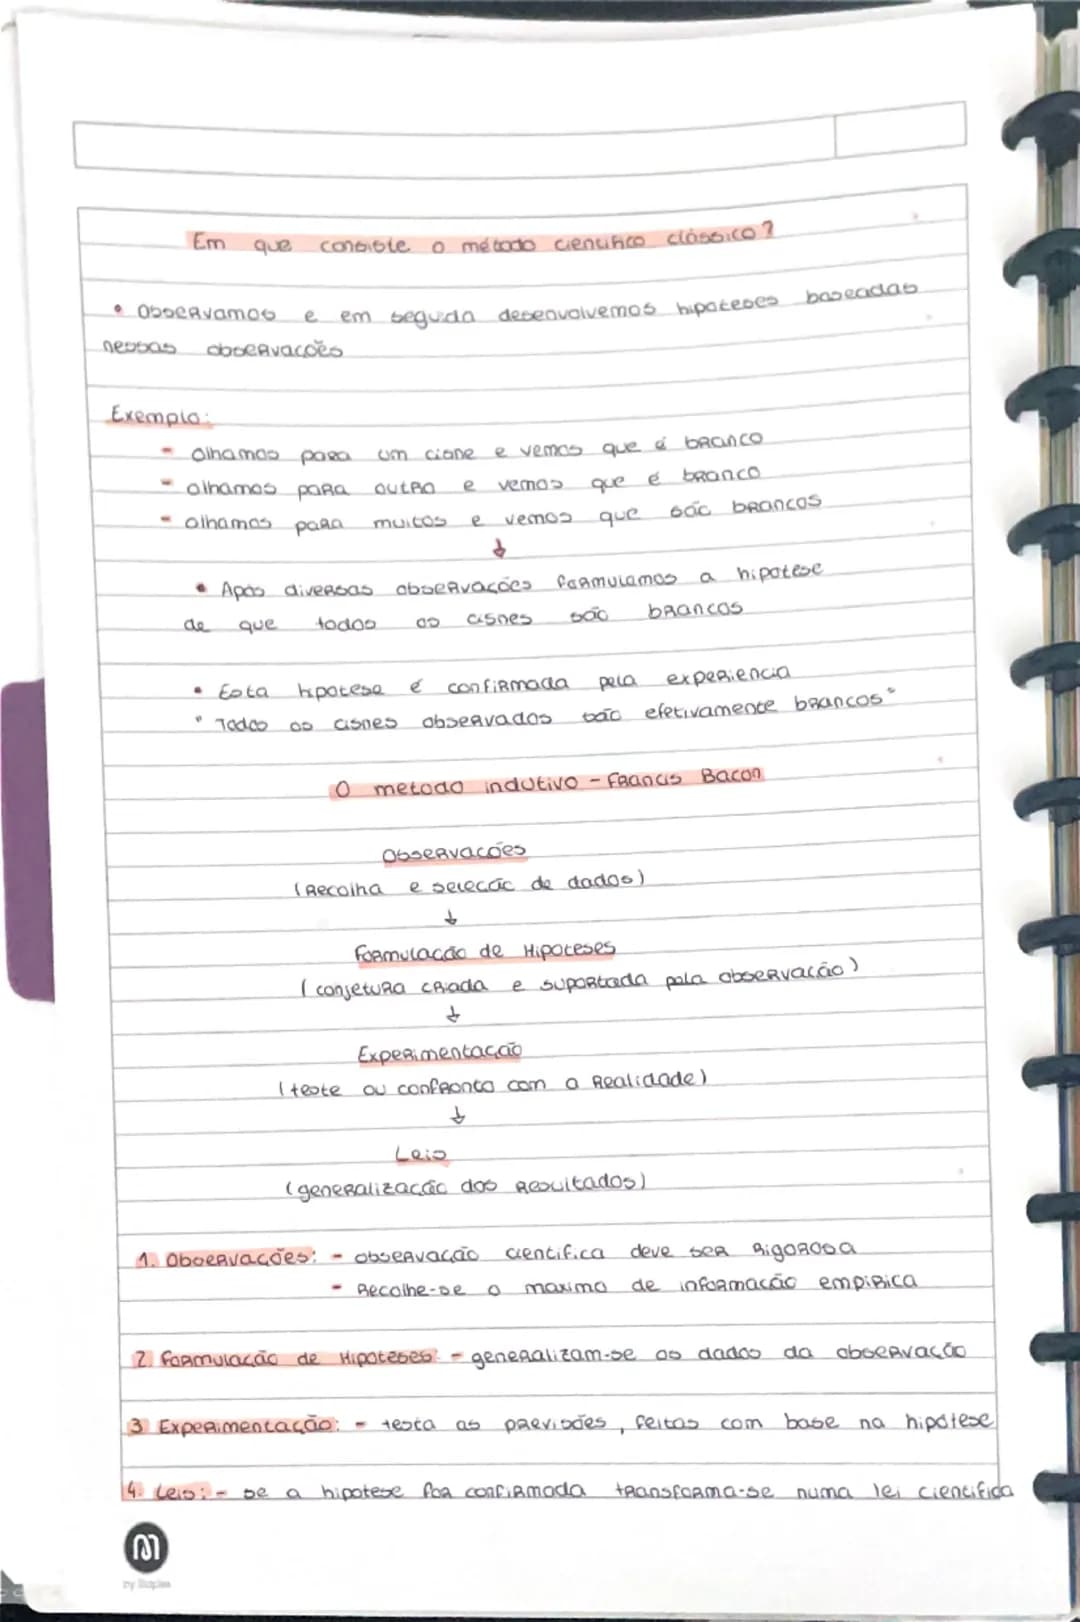 Em que consiste o método cientifico clássico?
• Observamos e em seguida desenvolvemos hipoteses baseadas
nessas observações
Exemplo:
- olhamos para um cisne e vemos que é branco
- olhamos para outro e vemos que é branco
- olhamos para muitos e vemos que são brancos
↓
• Após diversas observações formulamos a hipotese
de que todos os cisnes são brancos
• Esta hipotese é confirmada pela experiencia
" Todos os cisnes observados são efetivamente brancos "
O metodo indutivo - Francis Bacon
Observações
(Recolha e seleção de dados)
↓
Formulação de Hipoteses
( conjetura criada e suportada pela observação )
↓
Experimentação
( teste ou confronto com a Realidade )
↓
Leis
(generalização dos Resultados)
1. Observações: - observação cientifica deve ser Rigorosa
- Recolhe-se o maximo de informação empirica
2. Formulação de Hipoteses: - generalizam-se os dados da observação
3 Experimentação: - testa as previsões, feitas com base na hipótese
4. Leis: - se a hipotese for confirmada transforma-se numa lei cientifida
by Staples